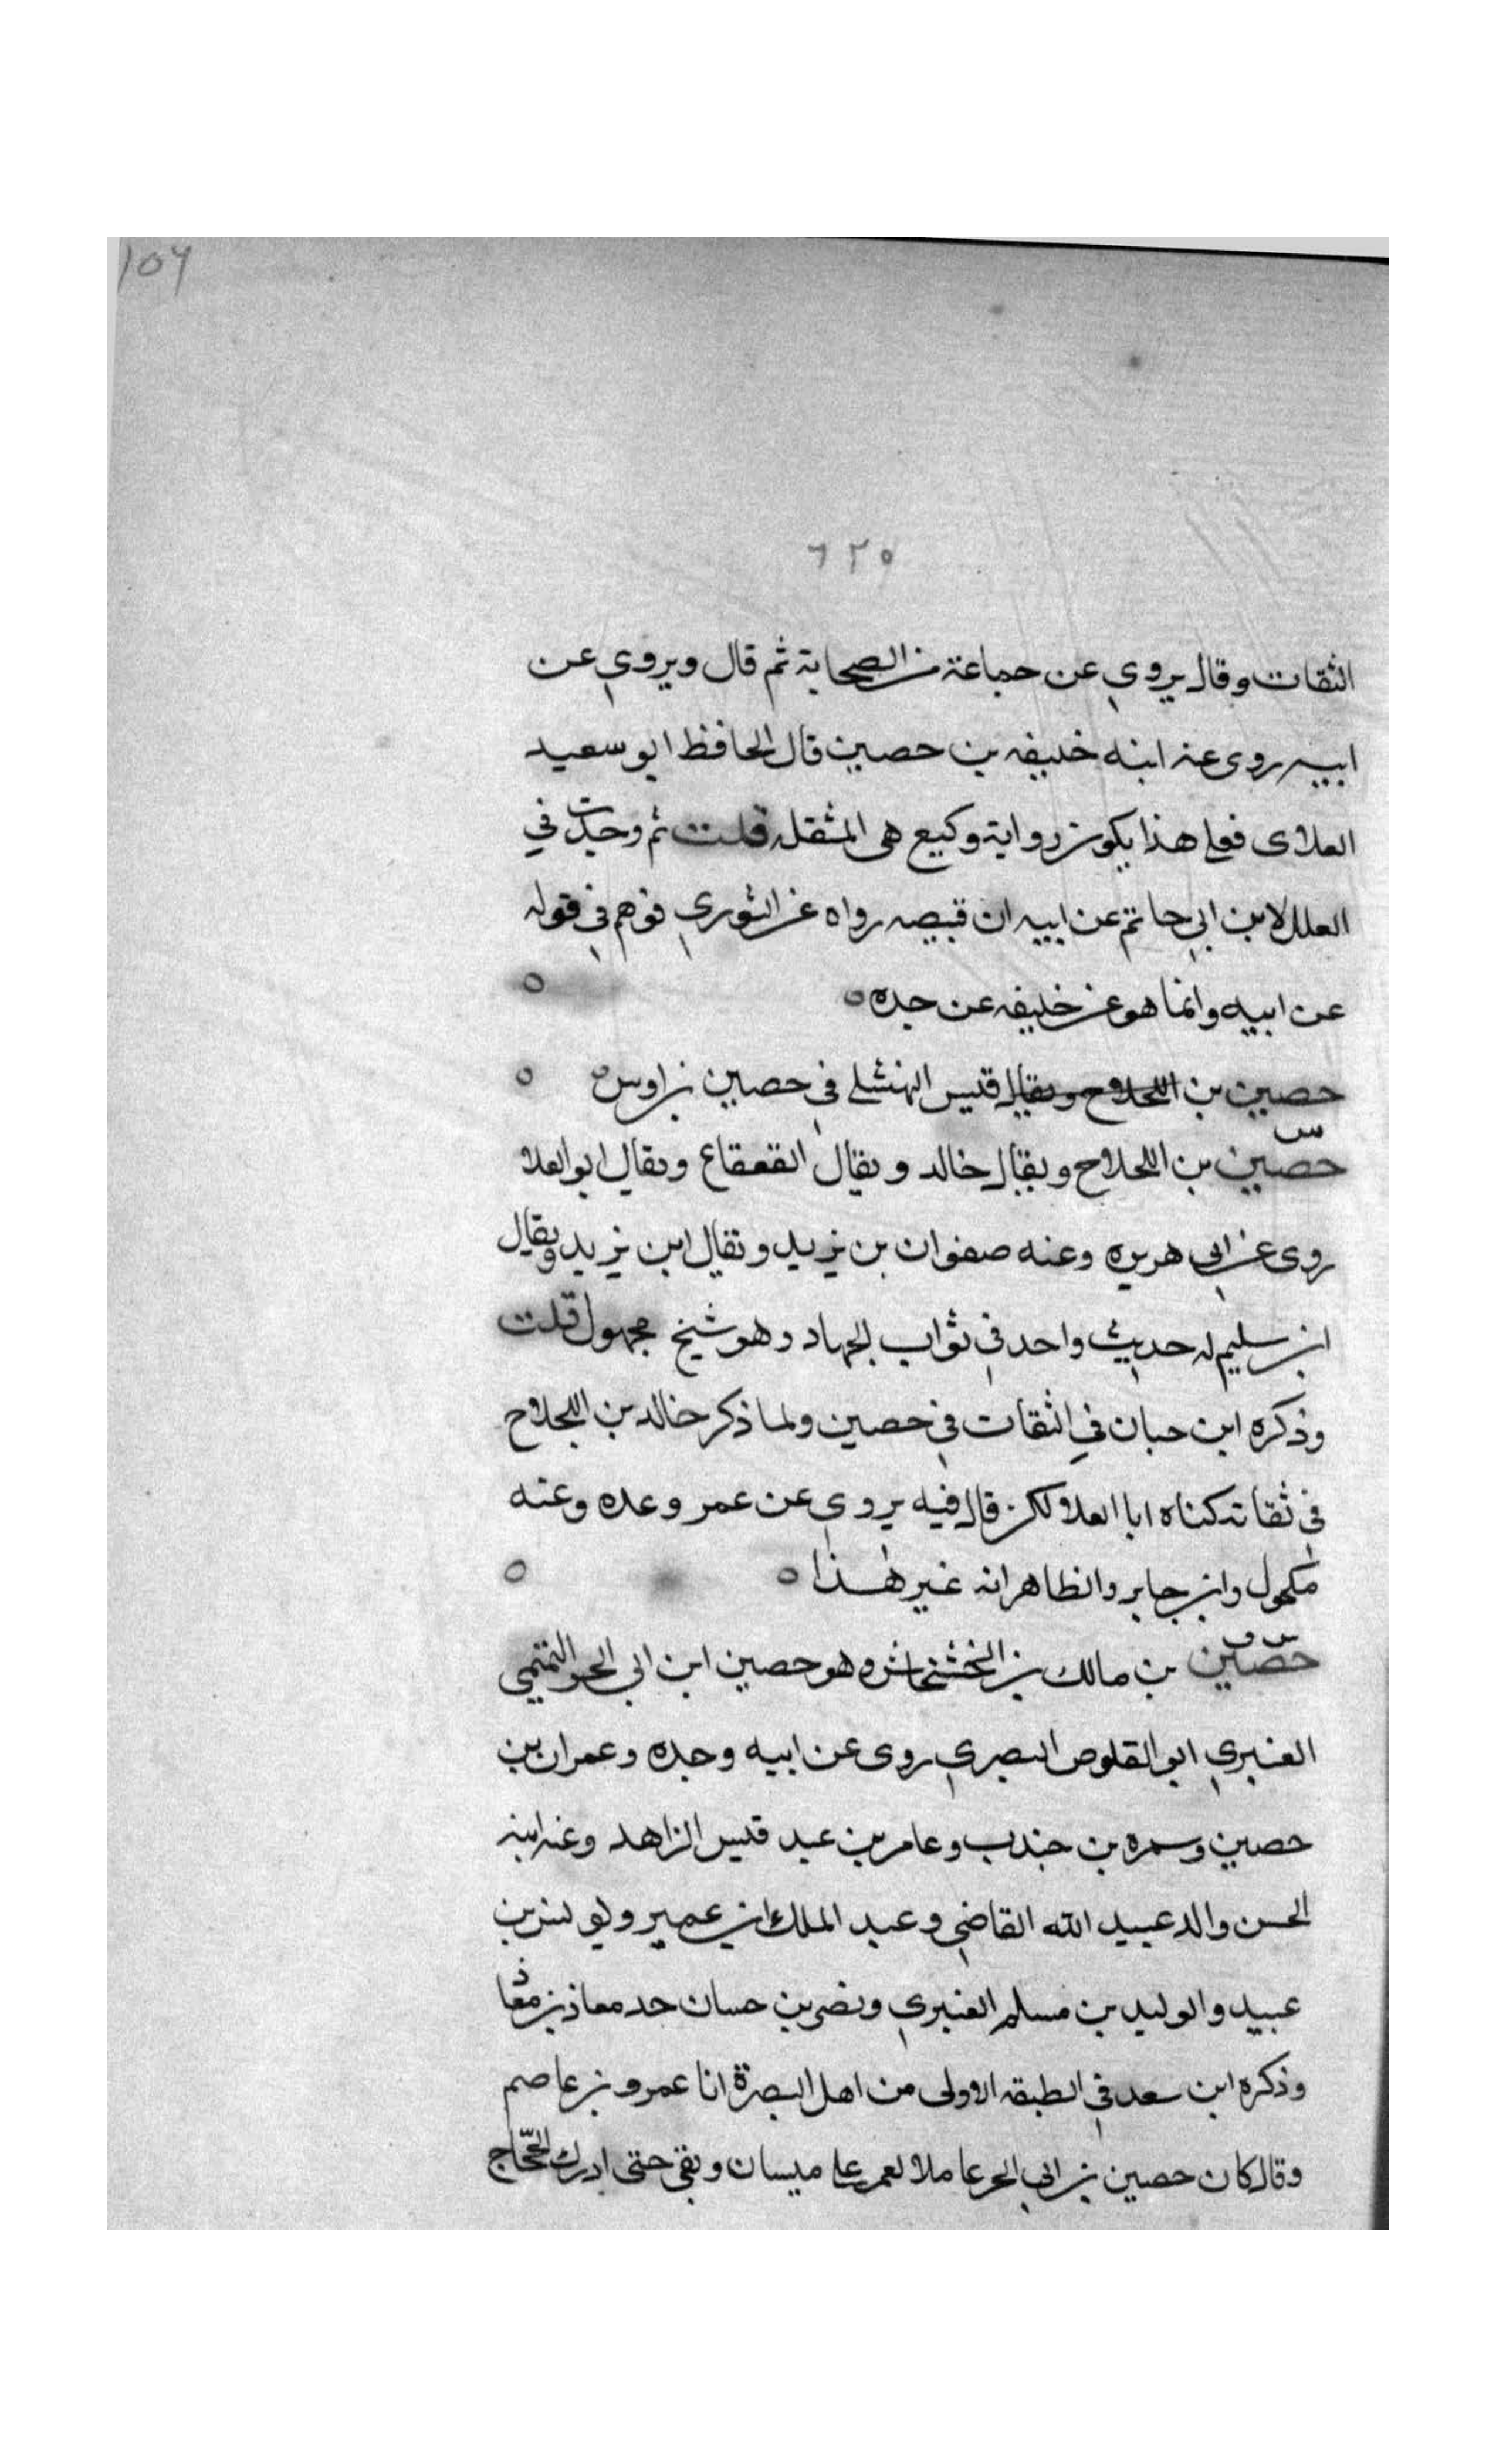 ١٥٦
٦٢٥
الثقات وقال يروي عن جماعة من الصحابة ثم قال ويروي عن
ابيه روى عنه ابنه خليفه بن حصين قال الحافظ ابو سعيد
العلاى فعلى هذا يكون رواية وكيع هى المثقله قلت ثم وجدت في
العلل لابن ابي حاتم عن ابيه ان قبيصه رواه عن الثوري فوهم في قوله
عن ابيه وانما هو عن خليفه عن جده ه
حصين بن اللجلاج ويقال قيس النهشلي في حصين بن اوس ه
س
حصين بن اللجلاج ويقال خالد ويقال القعقاع ويقال ابو العلا
روى عن ابي هريره وعنه صفوان بن يزيد ويقال ابن يزيد ويقال
ابن سليم له حديث واحد في ثواب الجهاد وهو شيخ مجهول قلت
وذكره ابن حبان في الثقات في حصين ولما ذكر خالد بن اللجلاج
في ثقاته كناه ابا العلا لكن قال فيه يروي عن عمر وعده وعنه
مكحول وابن جابر والظاهر انه غير هذا ه
س ق
حصين بن مالك بن الخشخاش وهو حصين ابن ابي الحر التميمي
العنبري ابو القلوص البصري روى عن ابيه وجده وعمران بن
حصين وسمره بن جندب وعامر بن عبد قيس الزاهد وعنه ابنه
الحسن والد عبيد الله القاضي وعبد الملك ابن عمير ويونس بن
عبيد والوليد بن مسلم العنبري ونصر بن حسان جد معاذ بن معاذ
وذكره ابن سعد في الطبقه الاولى من اهل البصرة انا عمرو بن عاصم
وقال كان حصين بن ابي الحر عاملا لعمر على ميسان وبقي حتى ادرك الحجاج